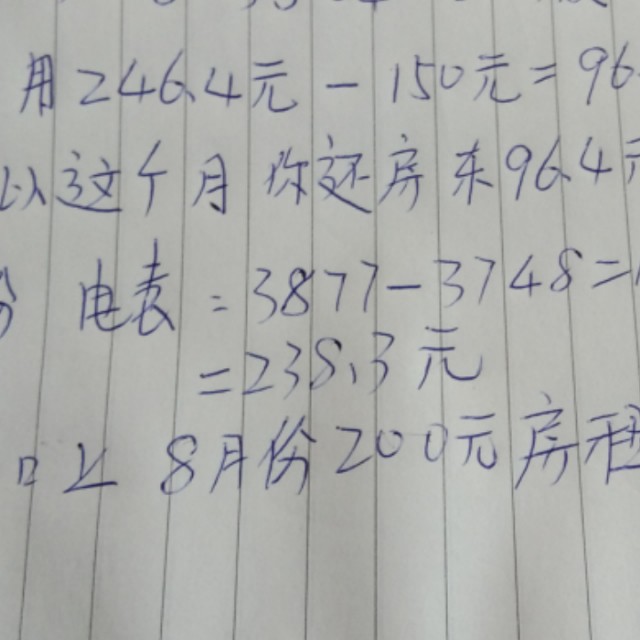 用246.4元-150元=96
以这个月你还房东96.4元
电表=3877-3748=
=238.3元
以 8月份200元房租